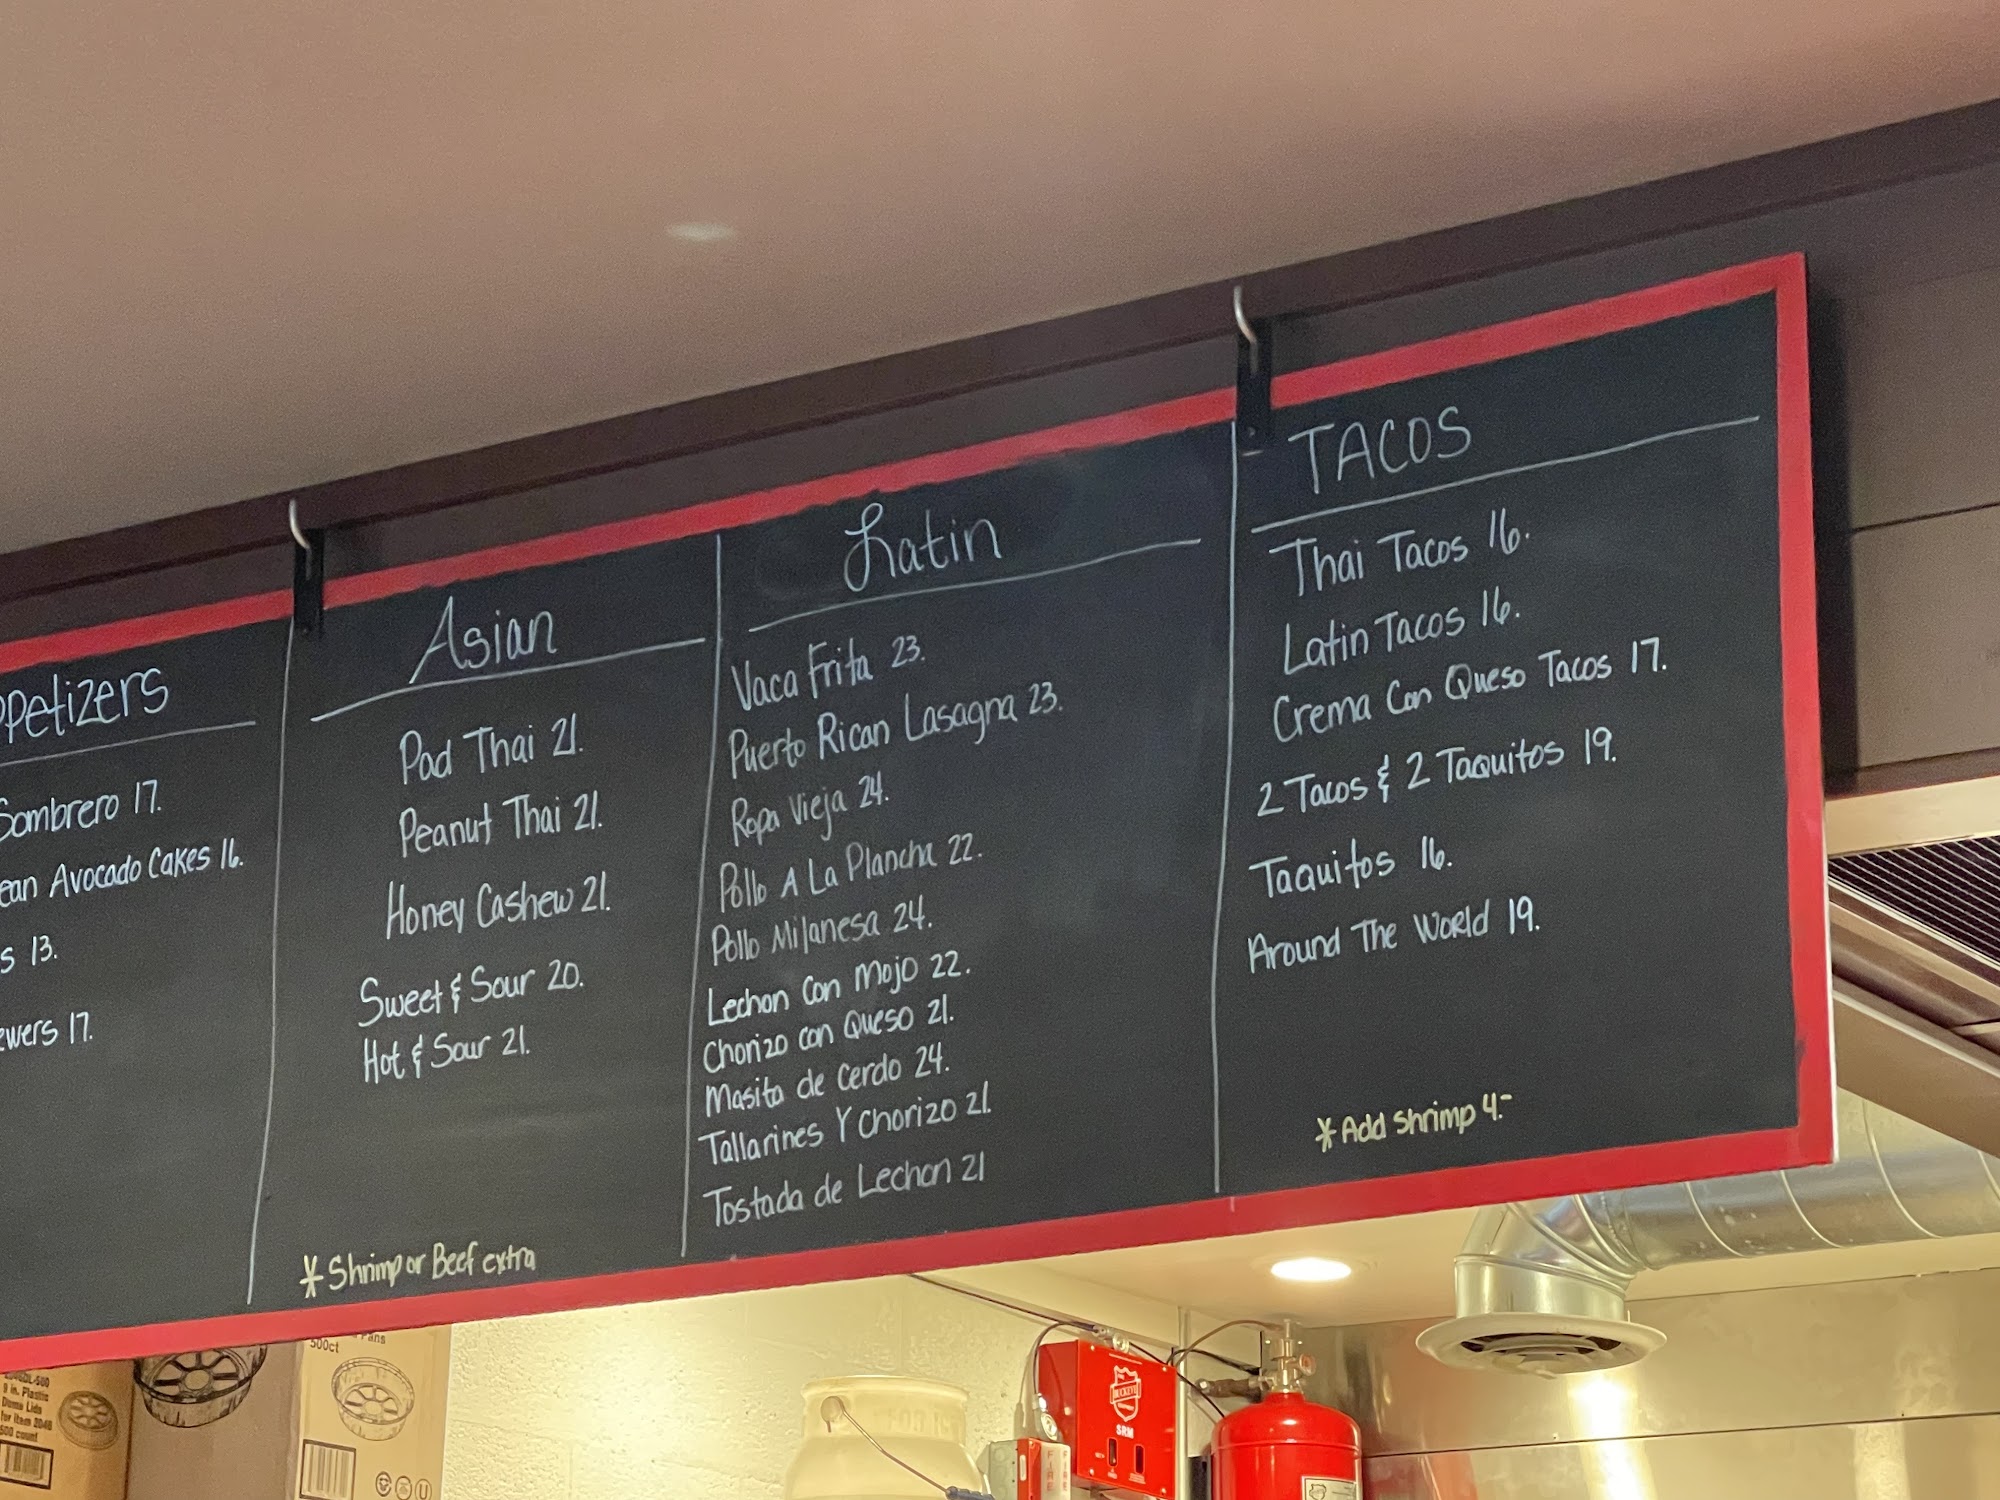 ppetizers
Sombrero 17.
ean Avocado Cakes 16.
s 13.
ewers 17.
Asian
Pad Thai 21.
Peanut Thai 21.
Honey Cashew 21.
Sweet & Sour 20.
Hot & Sour 21.
* Shrimp or Beef extra
Latin
Vaca Frita 23.
Puerto Rican Lasagna 23.
Ropa Vieja 24.
Pollo A La Plancha 22.
Pollo Milanesa 24.
Lechon Con Mojo 22.
Chorizo con Queso 21.
Masita de Cerdo 24.
Tallarines Y Chorizo 21.
Tostada de Lechon 21
TACOS
Thai Tacos 16.
Latin Tacos 16.
Crema Con Queso Tacos 17.
2 Tacos & 2 Taquitos 19.
Taquitos 16.
Around The World 19.
* Add Shrimp 4.-
9 in. Plastic
Dome Lids
for item 2046
500 count
Pans
500ct
BUCKEYE
SRM
FIRE
FIRE